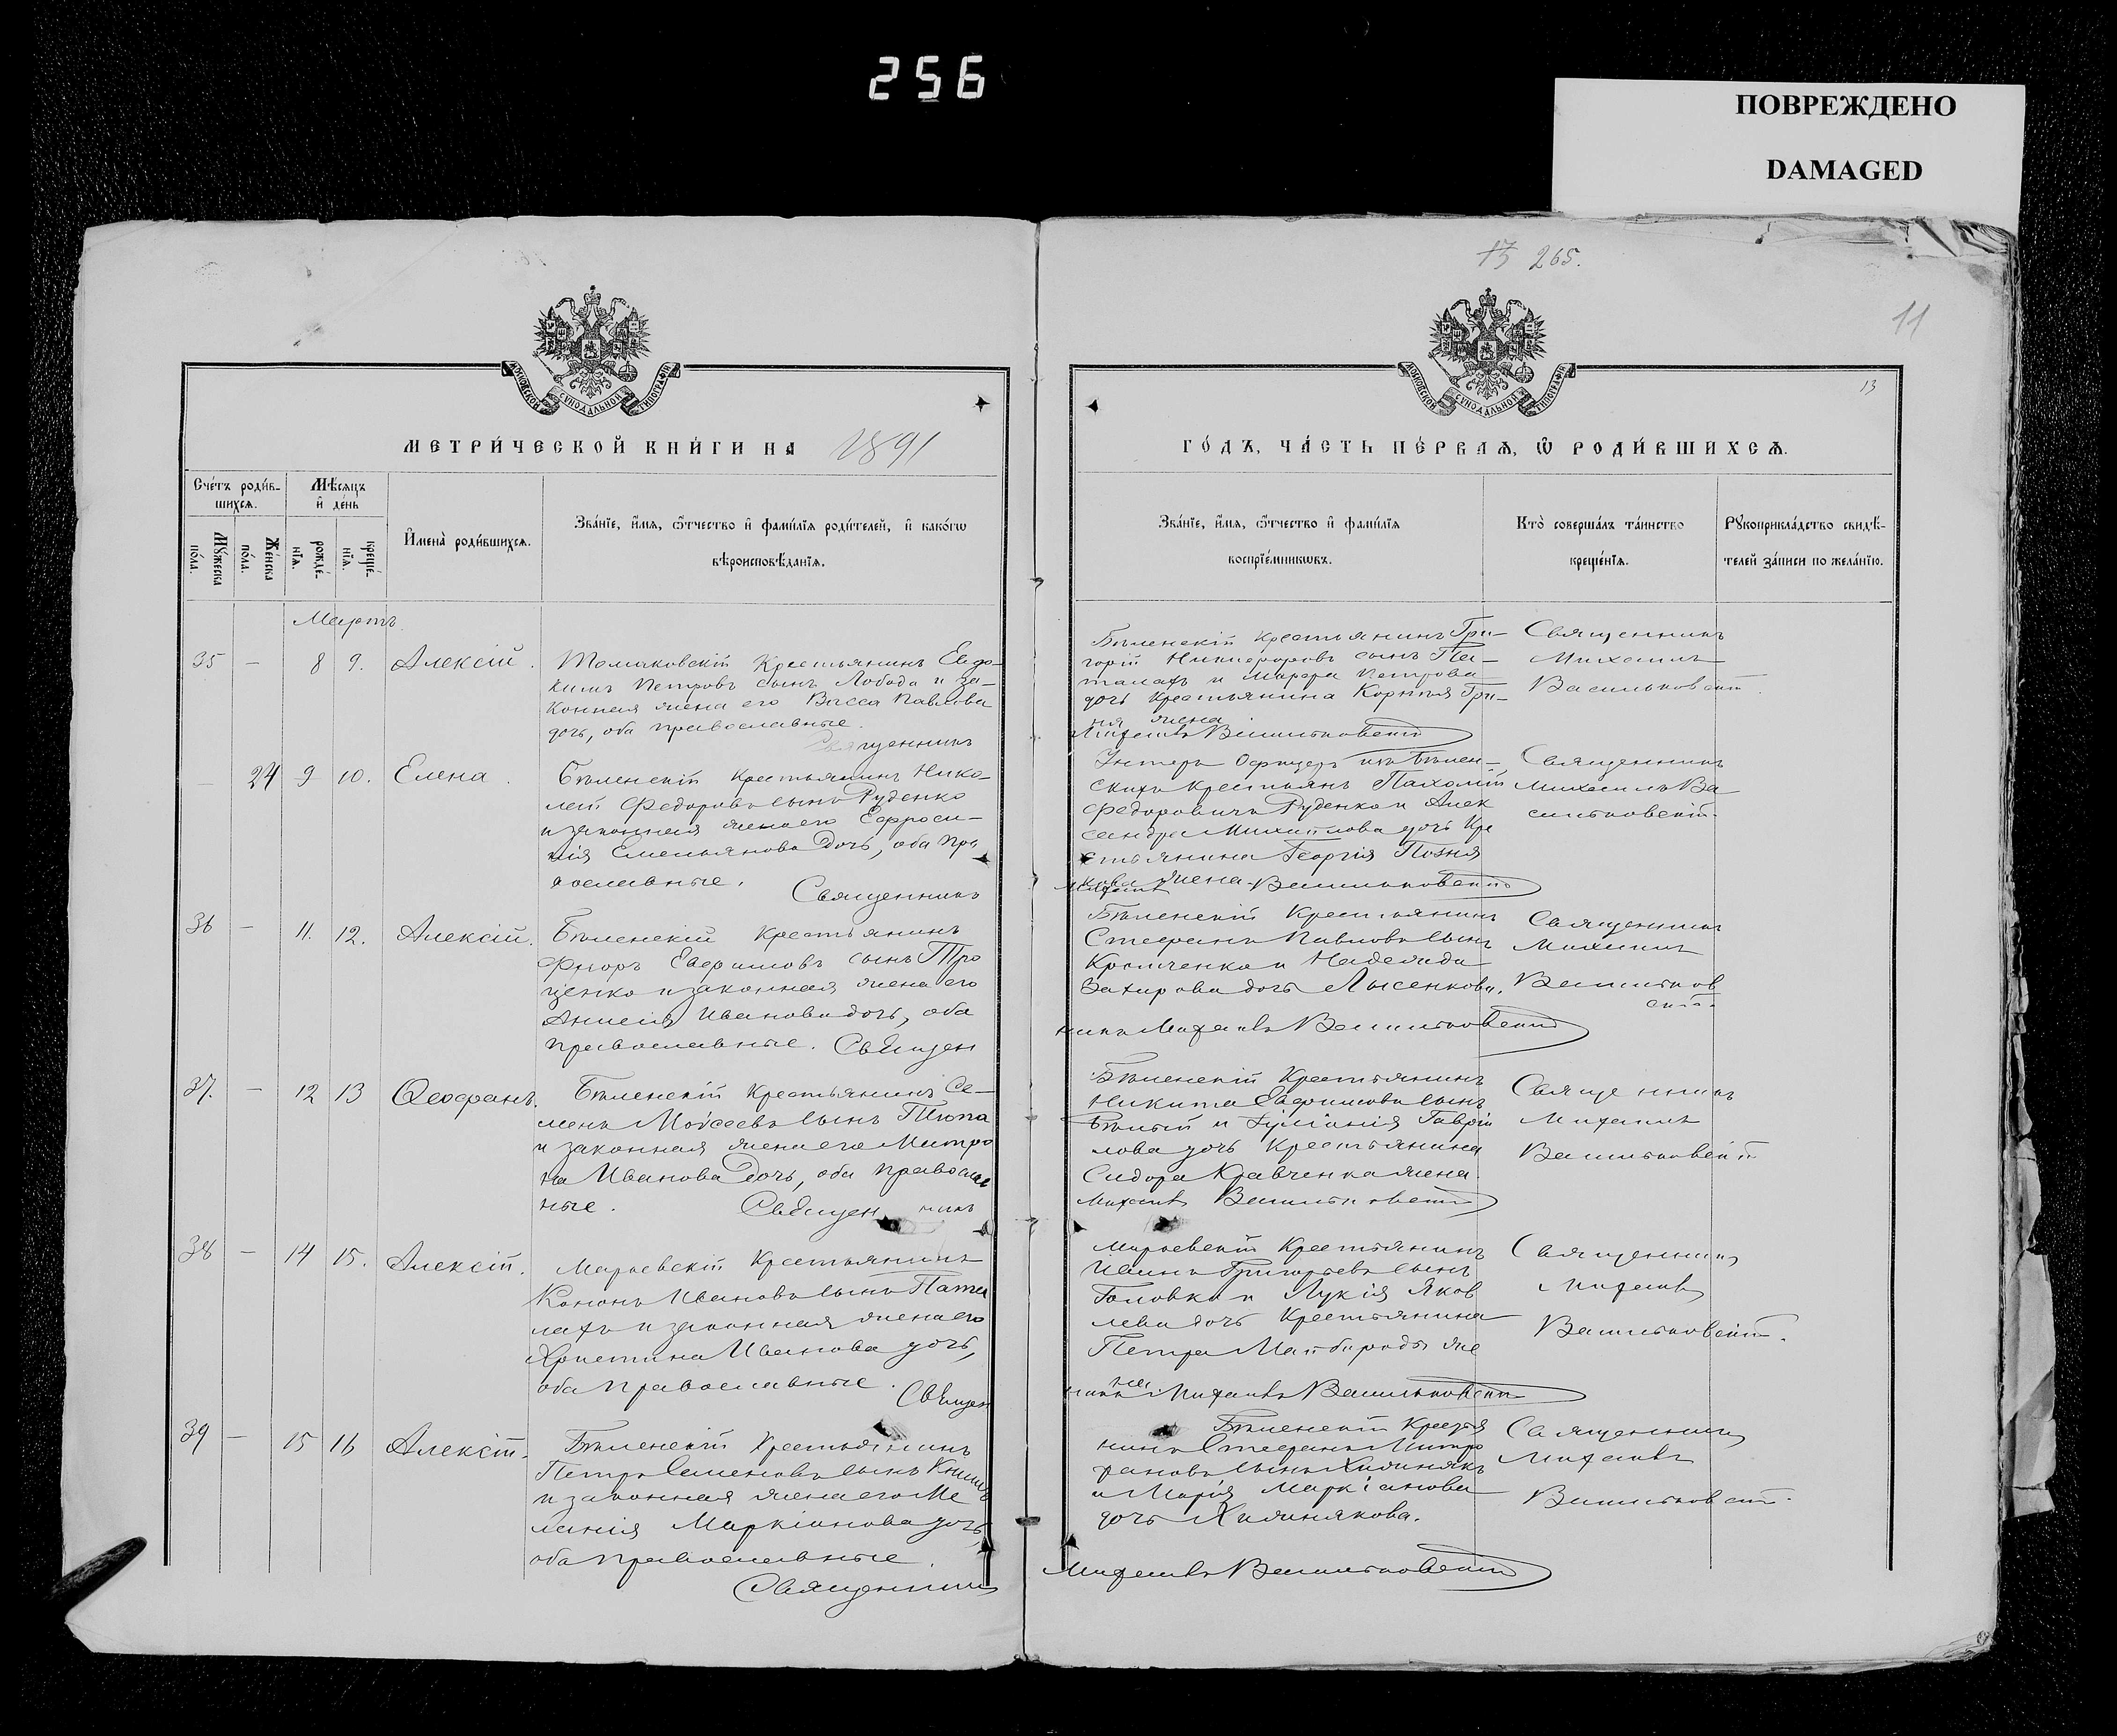 256
ПОВРЕЖДЕНО
DAMAGED
15 265.
11
13
МОСКОВСКОЙ СѴНОДАЛЬНОЙ ТИПОГРАФІИ
МОСКОВСКОЙ СѴНОДАЛЬНОЙ ТИПОГРАФІИ
МЕТРИ́ЧЕСКОЙ КНИ́ГИ НА 1891
ГО́ДЪ, ЧА́СТЬ ПЕ́РВАѦ, Ѽ РОДИ́ВШИХСѦ.
Сче́тъ роди́в-
шихсѧ.
Мꙋ́жеска
по́ла.
Же́нска
по́ла.
Мѣ́сѧцъ
и҆ де́нь
рожде́-
нїѧ.
креще́-
нїѧ.
И҆мена̀ роди́вшихсѧ.
Зва́нїе, и҆́мѧ, ѻ҆́тчество и҆ фами́лїѧ роди́телей, и҆ како́гѡ
вѣроисповѣ́данїѧ.
Зва́нїе, и҆́мѧ, ѻ҆́тчество и҆ фами́лїѧ
воспрїе́мникѡвъ.
Кто̀ соверша́лъ та́инство
креще́нїѧ.
Рꙋкоприкла́дство свидѣ́-
телей за́писи по жела́нїю.
Мартъ
35 — 8 9. Алексій.
Томаковскій Крестьянинъ Евдо-
кимъ Петровъ сынъ Лобода и за-
конная жена его Васса Павлова
дочь, оба православные.
Священникъ
Бѣленскій Крестьянинъ Гри-
горій Никифоровъ сынъ Па-
талахъ и Марфа Петрова
дочь Крестьянина Корнилія Гри-
жена
Михаилъ Васильковскій
Священникъ
Михаилъ
Васильковскій.
— 24 9 10. Елена.
Бѣленскій крестьянинъ Нико-
лай Федоровъ сынъ Руденко
и законная жена его Ефроси-
нія Емельянова дочь, оба пра
вославные.
Священникъ
Унтеръ Офицеръ изъ Бѣлен-
скихъ крестьянъ Пахомій
Федоровичъ Руденко и Алек
сандра Михайлова дочь Кре
стьянина Георгія Позня
кова жена.
Михаилъ Васильковскій
Священникъ
Михаилъ Ва
сильковскій.
36 — 11. 12. Алексій.
Бѣленскій Крестьянинъ
Флоръ Евфимовъ сынъ Тро
ценко и законная жена его
Анисія Иванова дочь, оба
православные. Священ
Бѣленскій Крестьянинъ
Стефанъ Павловъ сынъ
и Надежда
Захарова дочь Лысенкова.
никъ Михаилъ Васильковскій
Священникъ
Михаилъ
Васильков
скій.
37. — 12 13 Ѳеофанъ.
Бѣленскій Крестьянинъ Се-
менъ Моѵсеевъ сынъ Тюпа
и законная жена его Матро
на Иванова дочь, оба православ
ные. Священникъ
Бѣленскій Крестьянинъ
Никита Евфимовъ сынъ
Бѣлый и Іуліанія Гаврии
лова дочь Крестьянина
Сидора Кравченка жена.
Михаилъ Васильковскій
Священникъ
Михаилъ
Васильковскій
38 — 14 15. Алексій.
Марьевскій Крестьянинъ
Кононъ Ивановъ сынъ Пата
лахъ и законная жена его
Христина Иванова дочь,
оба православные.
Священ
Марьевскій Крестьянинъ
Иванъ Григорьевъ сынъ
Головко и Лукія Яков
лева дочь Крестьянина
Петра Майбороды же
на.
никъ Михаилъ Васильковскій
Священникъ
Михаилъ
Васильковскій.
39 — 15 16 Алексій.
Бѣленскій Крестьянинъ
Петръ Семеновъ сынъ
и законная жена его Ме
ланія Маркіанова дочь,
оба православные.
Священникъ
Бѣленскій Крестья
нинъ Стефанъ Митро
фановъ сынъ Хижнякъ
и Марія Маркіанова
дочь Хижнякова.
Михаилъ Васильковскій
Священникъ
Михаилъ
Васильковскій.